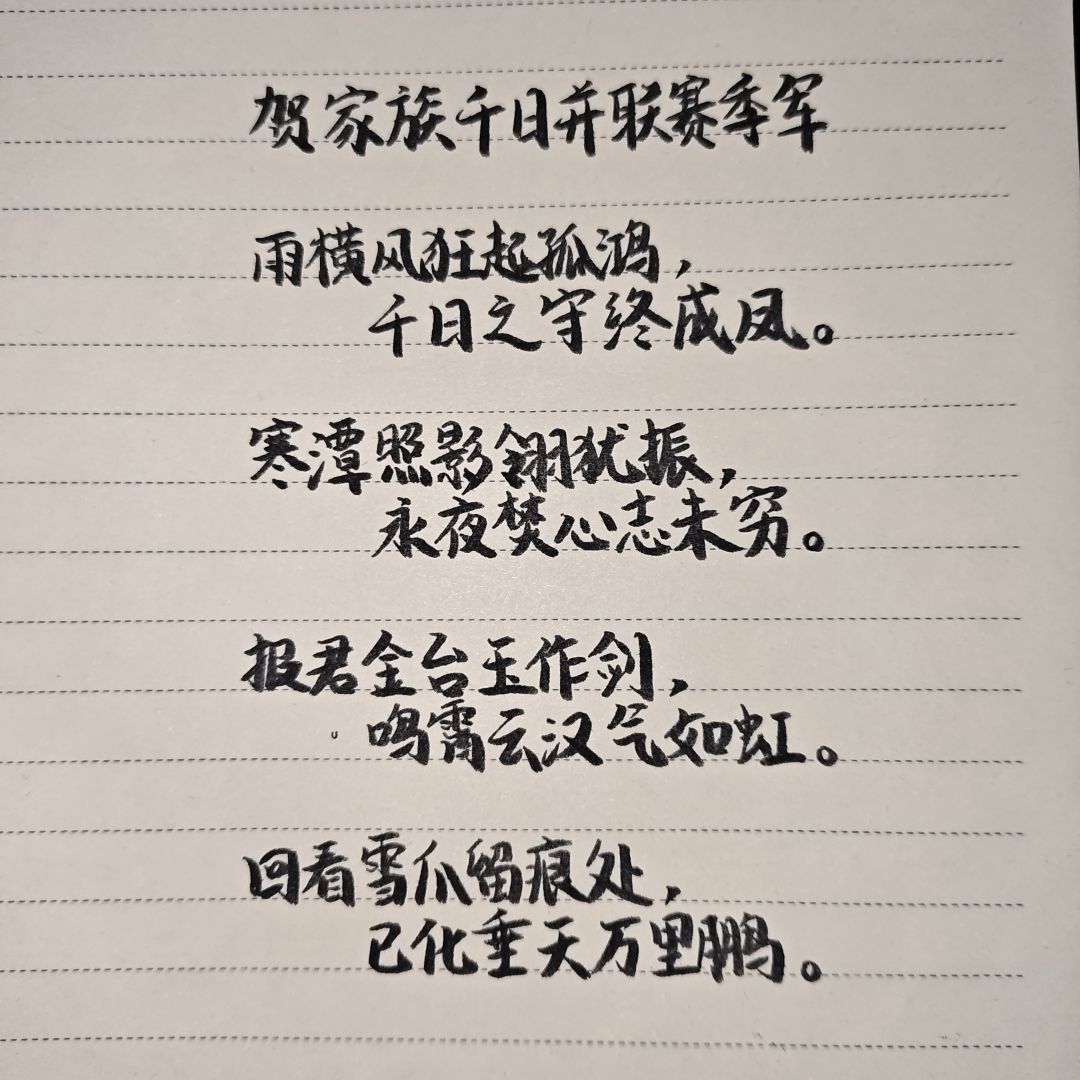 贺家族千日并联赛季军
雨横风狂起孤鸿，
千日之守终成凤。
寒潭照影翎犹振，
永夜焚心志未穷。
报君金台玉作剑，
鸣霄云汉气如虹。
回看雪爪留痕处，
已化垂天万里鹏。